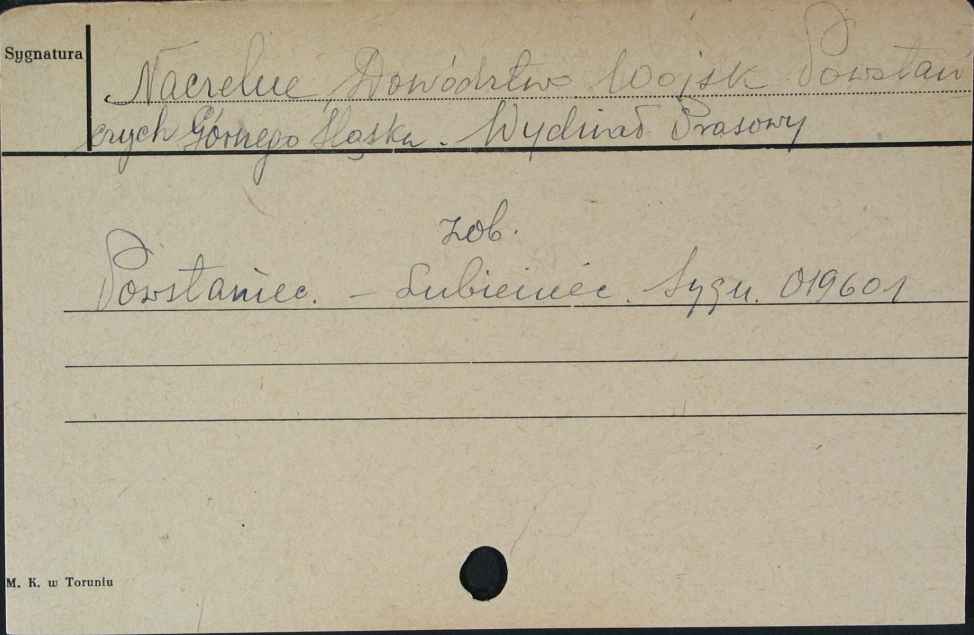 Sygnatura
Naczelne Dowództwo Wojsk Powstań
czych Górnego Śląska. Wydział Prasowy
zob.
Powstaniec. – Lubieniec. Sygn. 019601
M. K. w Toruniu